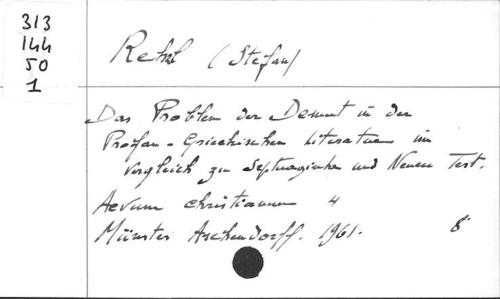 313
144
50
1
Rehrl (Stefan)
Das Problem der Demut in der
Profan-Griechischen Literatur im
Vergleich zu Septuaginta und Neuen Test.
Aevum christianum 4
Münster Aschendorff. 1961. 8°